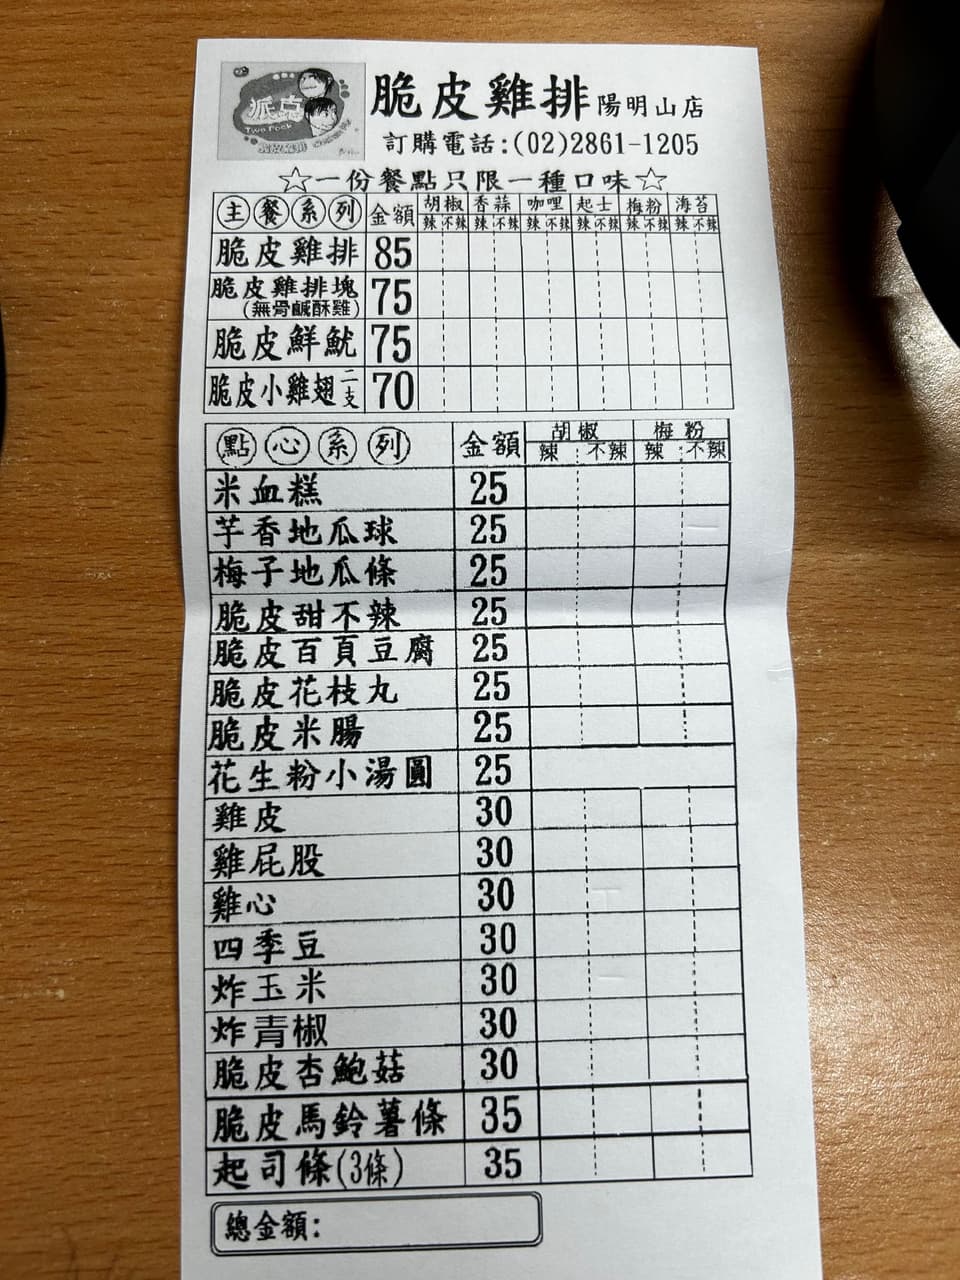 派克
Two Peck
脆皮雞排
脆皮雞排 陽明山店
訂購電話:(02)2861-1205
☆一份餐點只限一種口味☆
主餐系列 金額 胡椒 香蒜 咖哩 起士 梅粉 海苔
辣 不辣 辣 不辣 辣 不辣 辣 不辣 辣 不辣 辣 不辣
脆皮雞排 85
脆皮雞排塊 75
(無骨鹹酥雞)
脆皮鮮魷 75
脆皮小雞翅二支 70
點心系列 金額 胡椒 梅粉
辣 不辣 辣 不辣
米血糕 25
芋香地瓜球 25
梅子地瓜條 25
脆皮甜不辣 25
脆皮百頁豆腐 25
脆皮花枝丸 25
脆皮米腸 25
花生粉小湯圓 25
雞皮 30
雞屁股 30
雞心 30
四季豆 30
炸玉米 30
炸青椒 30
脆皮杏鮑菇 30
脆皮馬鈴薯條 35
起司條(3條) 35
總金額: